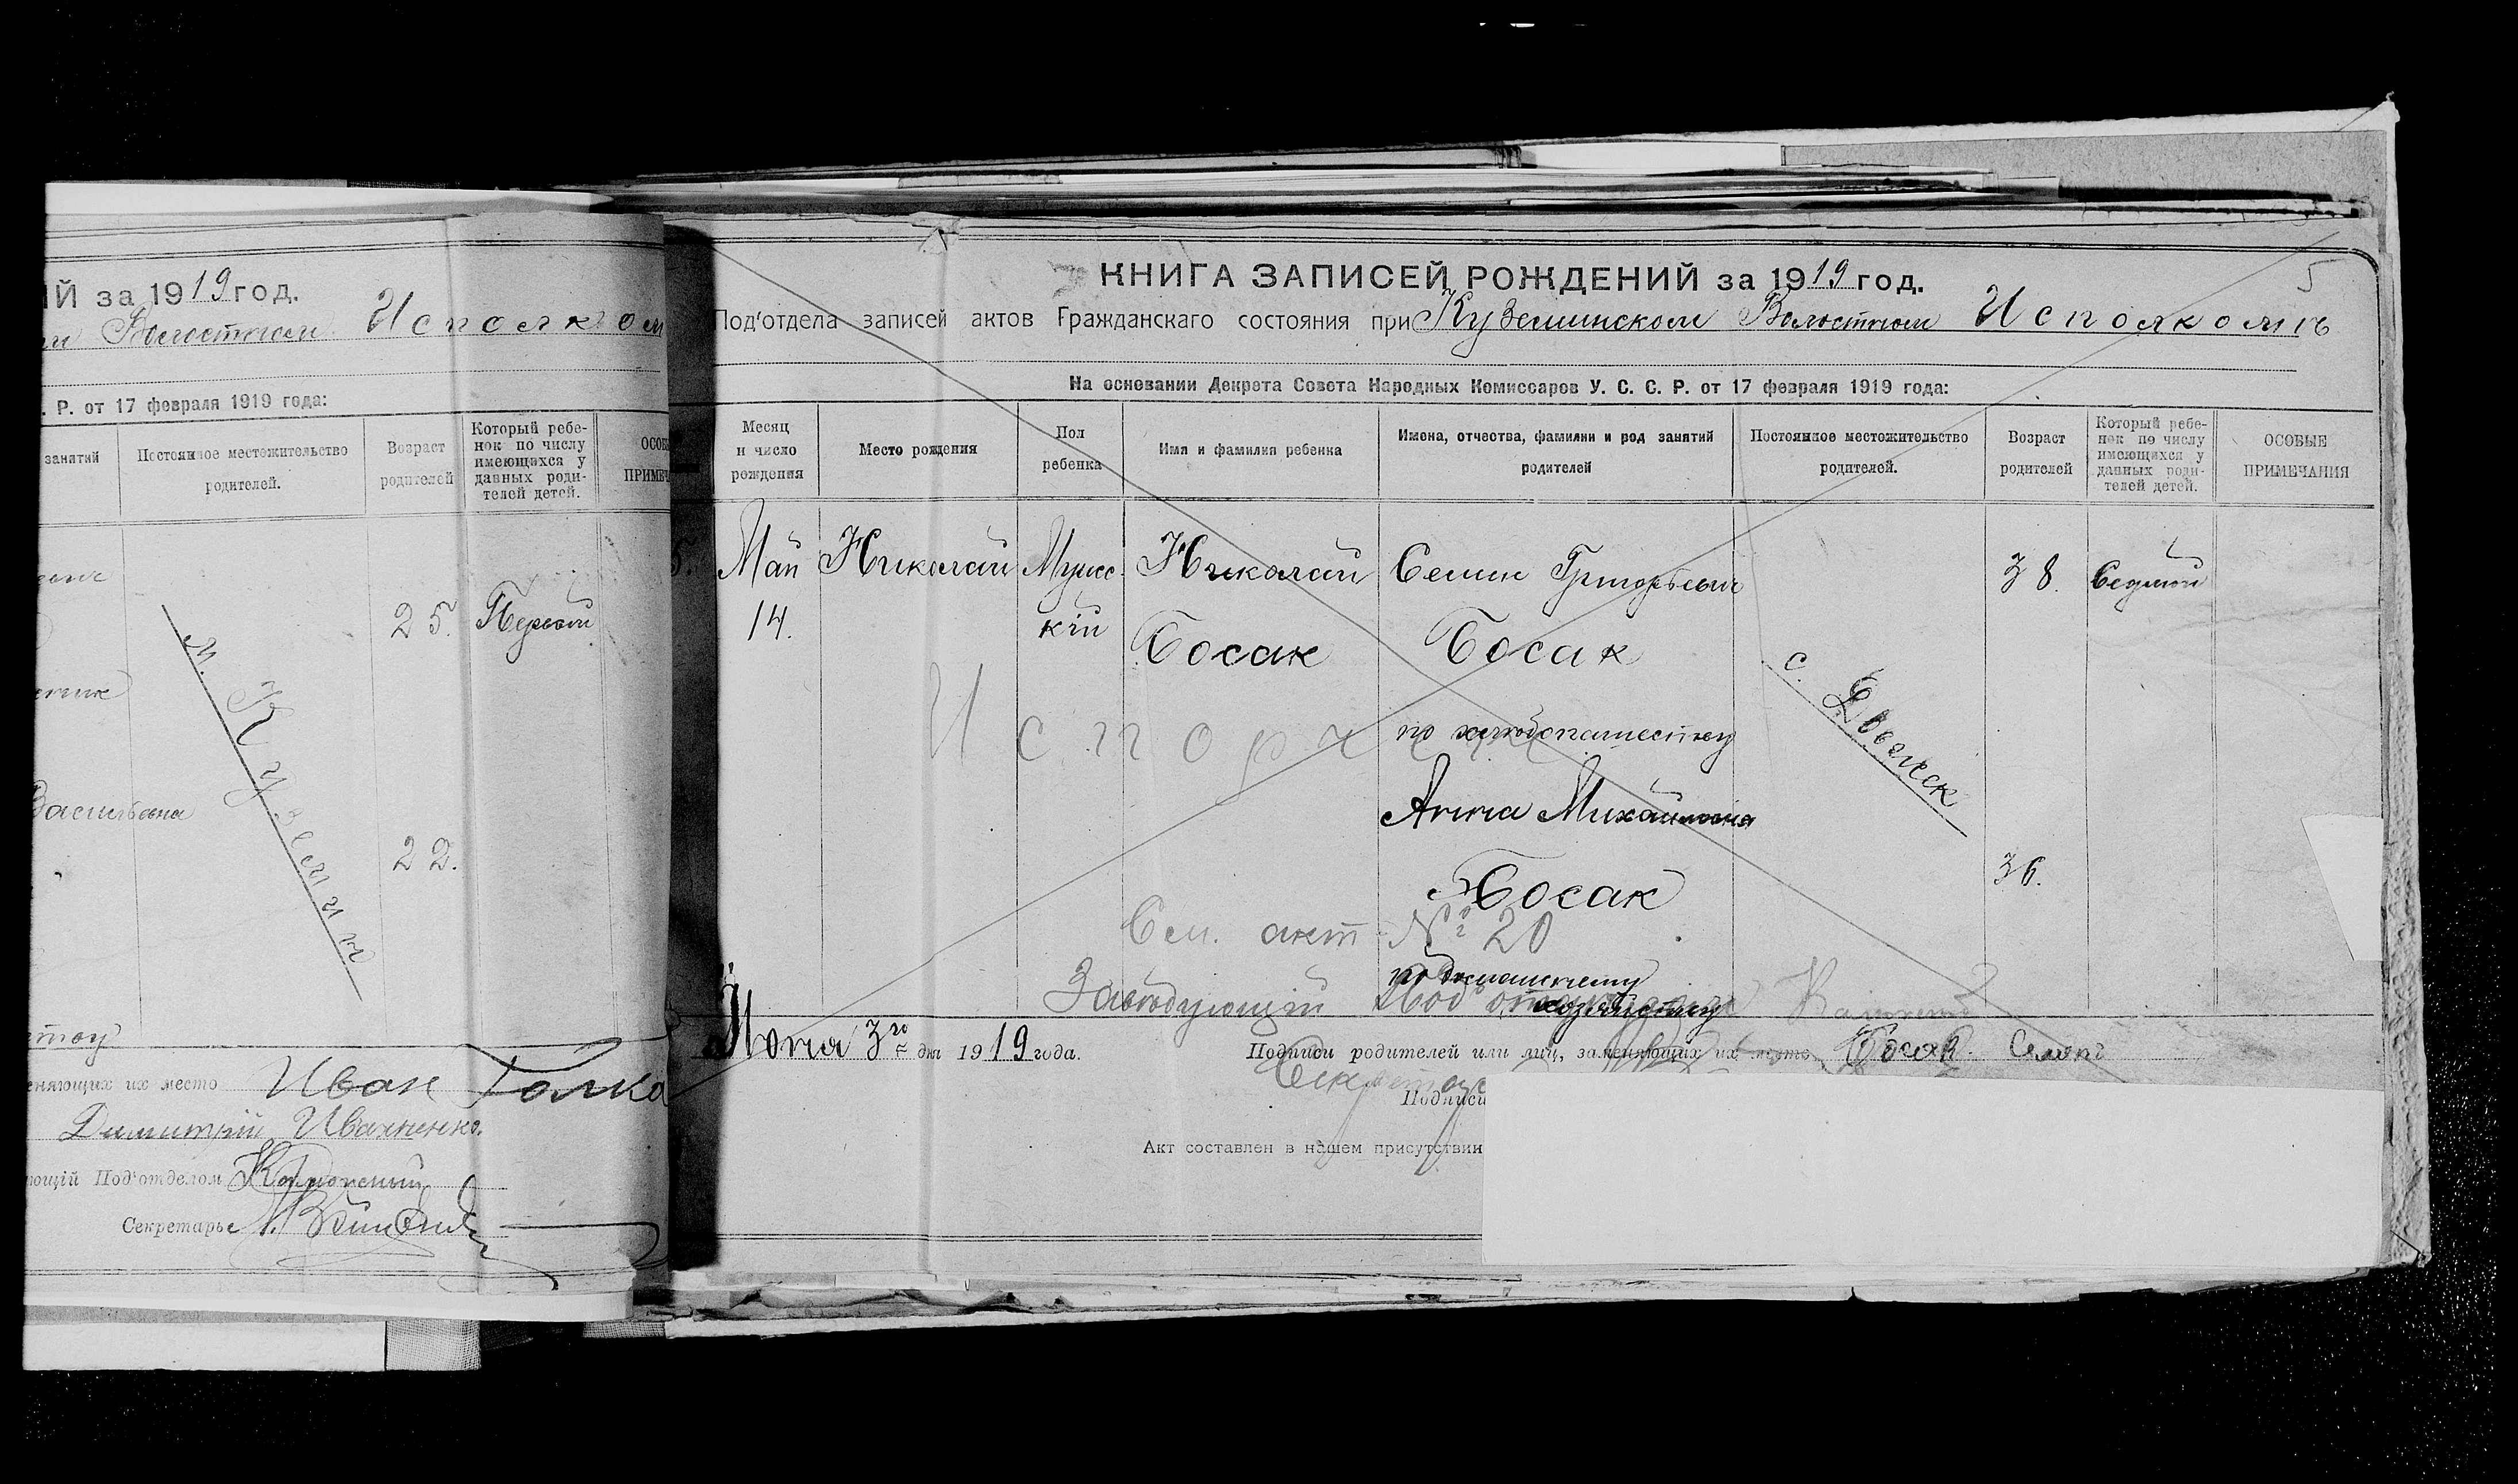 Й за 1919 год.
Волостном Исполком
. Р. от 17 февраля 1919 года:
занятий
Постоянное местожительство родителей.
Возраст родителей
Который ребе-
нок по числу
имеющихся у
данных роди-
телей детей.
ОСОБ
ПРИМЕЧ
25. Первой
м. Куземин
Васильевна
22.
еняющих их место Иван Голка
Димитрий Иваненко.
ющій Под'отделом
Секретарь
КНИГА ЗАПИСЕЙ РОЖДЕНИЙ за 1919 год.
5
Под'отдела записей актов Гражданскаго состояния при Куземинском Волостном Исполкомѣ
На основании Декрета Совета Народных Комиссаров У. С. С. Р. от 17 февраля 1919 года:
Месяц
и число
рождения
Место рождения
Пол
ребенка
Имя и фамилия ребенка
Имена, отчества, фамилии и род занятий
родителей
Постоянное местожительство
родителей.
Возраст
родителей
Который ребе-
нок по числу
имеющихся у
данных роди-
телей детей.
ОСОБЫЕ
ПРИМЕЧАНИЯ
5.
Май
14.
Николай
Мужс
кій
Николай
Босак
Семен Григорьевич
Босак
по хлебопашеству
Анна Михайловна
Босак
по домашнему
хозяйству
с.
38.
36.
Седмой
Испорчен
См. акт № 20
Завѣдующій
Июня 3го дня 1919 года.
Подписи родителей или лиц, заменяющих их место Босак Семен
Секретарь
Подписи
Акт составлен в нашем присутствии